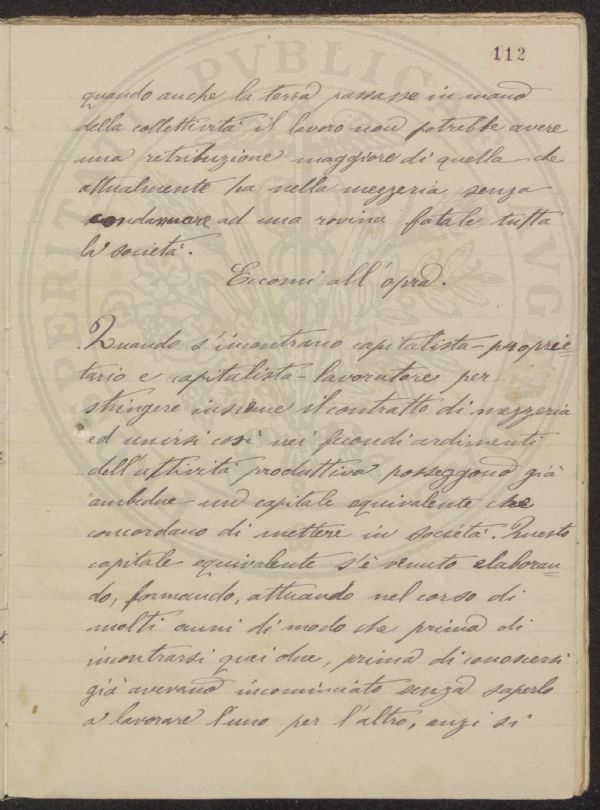 112
quando anche la terra passasse in mano
della collettività il lavoro non potrebbe avere
una retribuzione maggiore di quella che
attualmente ha nella mezzeria senza
condannare ad una rovina fatale tutta
la società.
Eccomi all'opra.
Quando s'incontrano capitalista-proprie=
tario e capitalista-lavoratore per
stringere insieme il contratto di mezzeria
ed unirsi così nei fecondi ardimenti
dell'attività produttiva posseggono già
ambedue un capitale equivalente che
concordano di mettere in società. Questo
capitale equivalente s'è venuto elaboran=
do, formando, attuando nel corso di
molti anni di modo che prima di
incontrarsi quei due, prima di conoscersi
già avevano incominciato senza saperlo
a lavorare l'uno per l'altro, anzi si